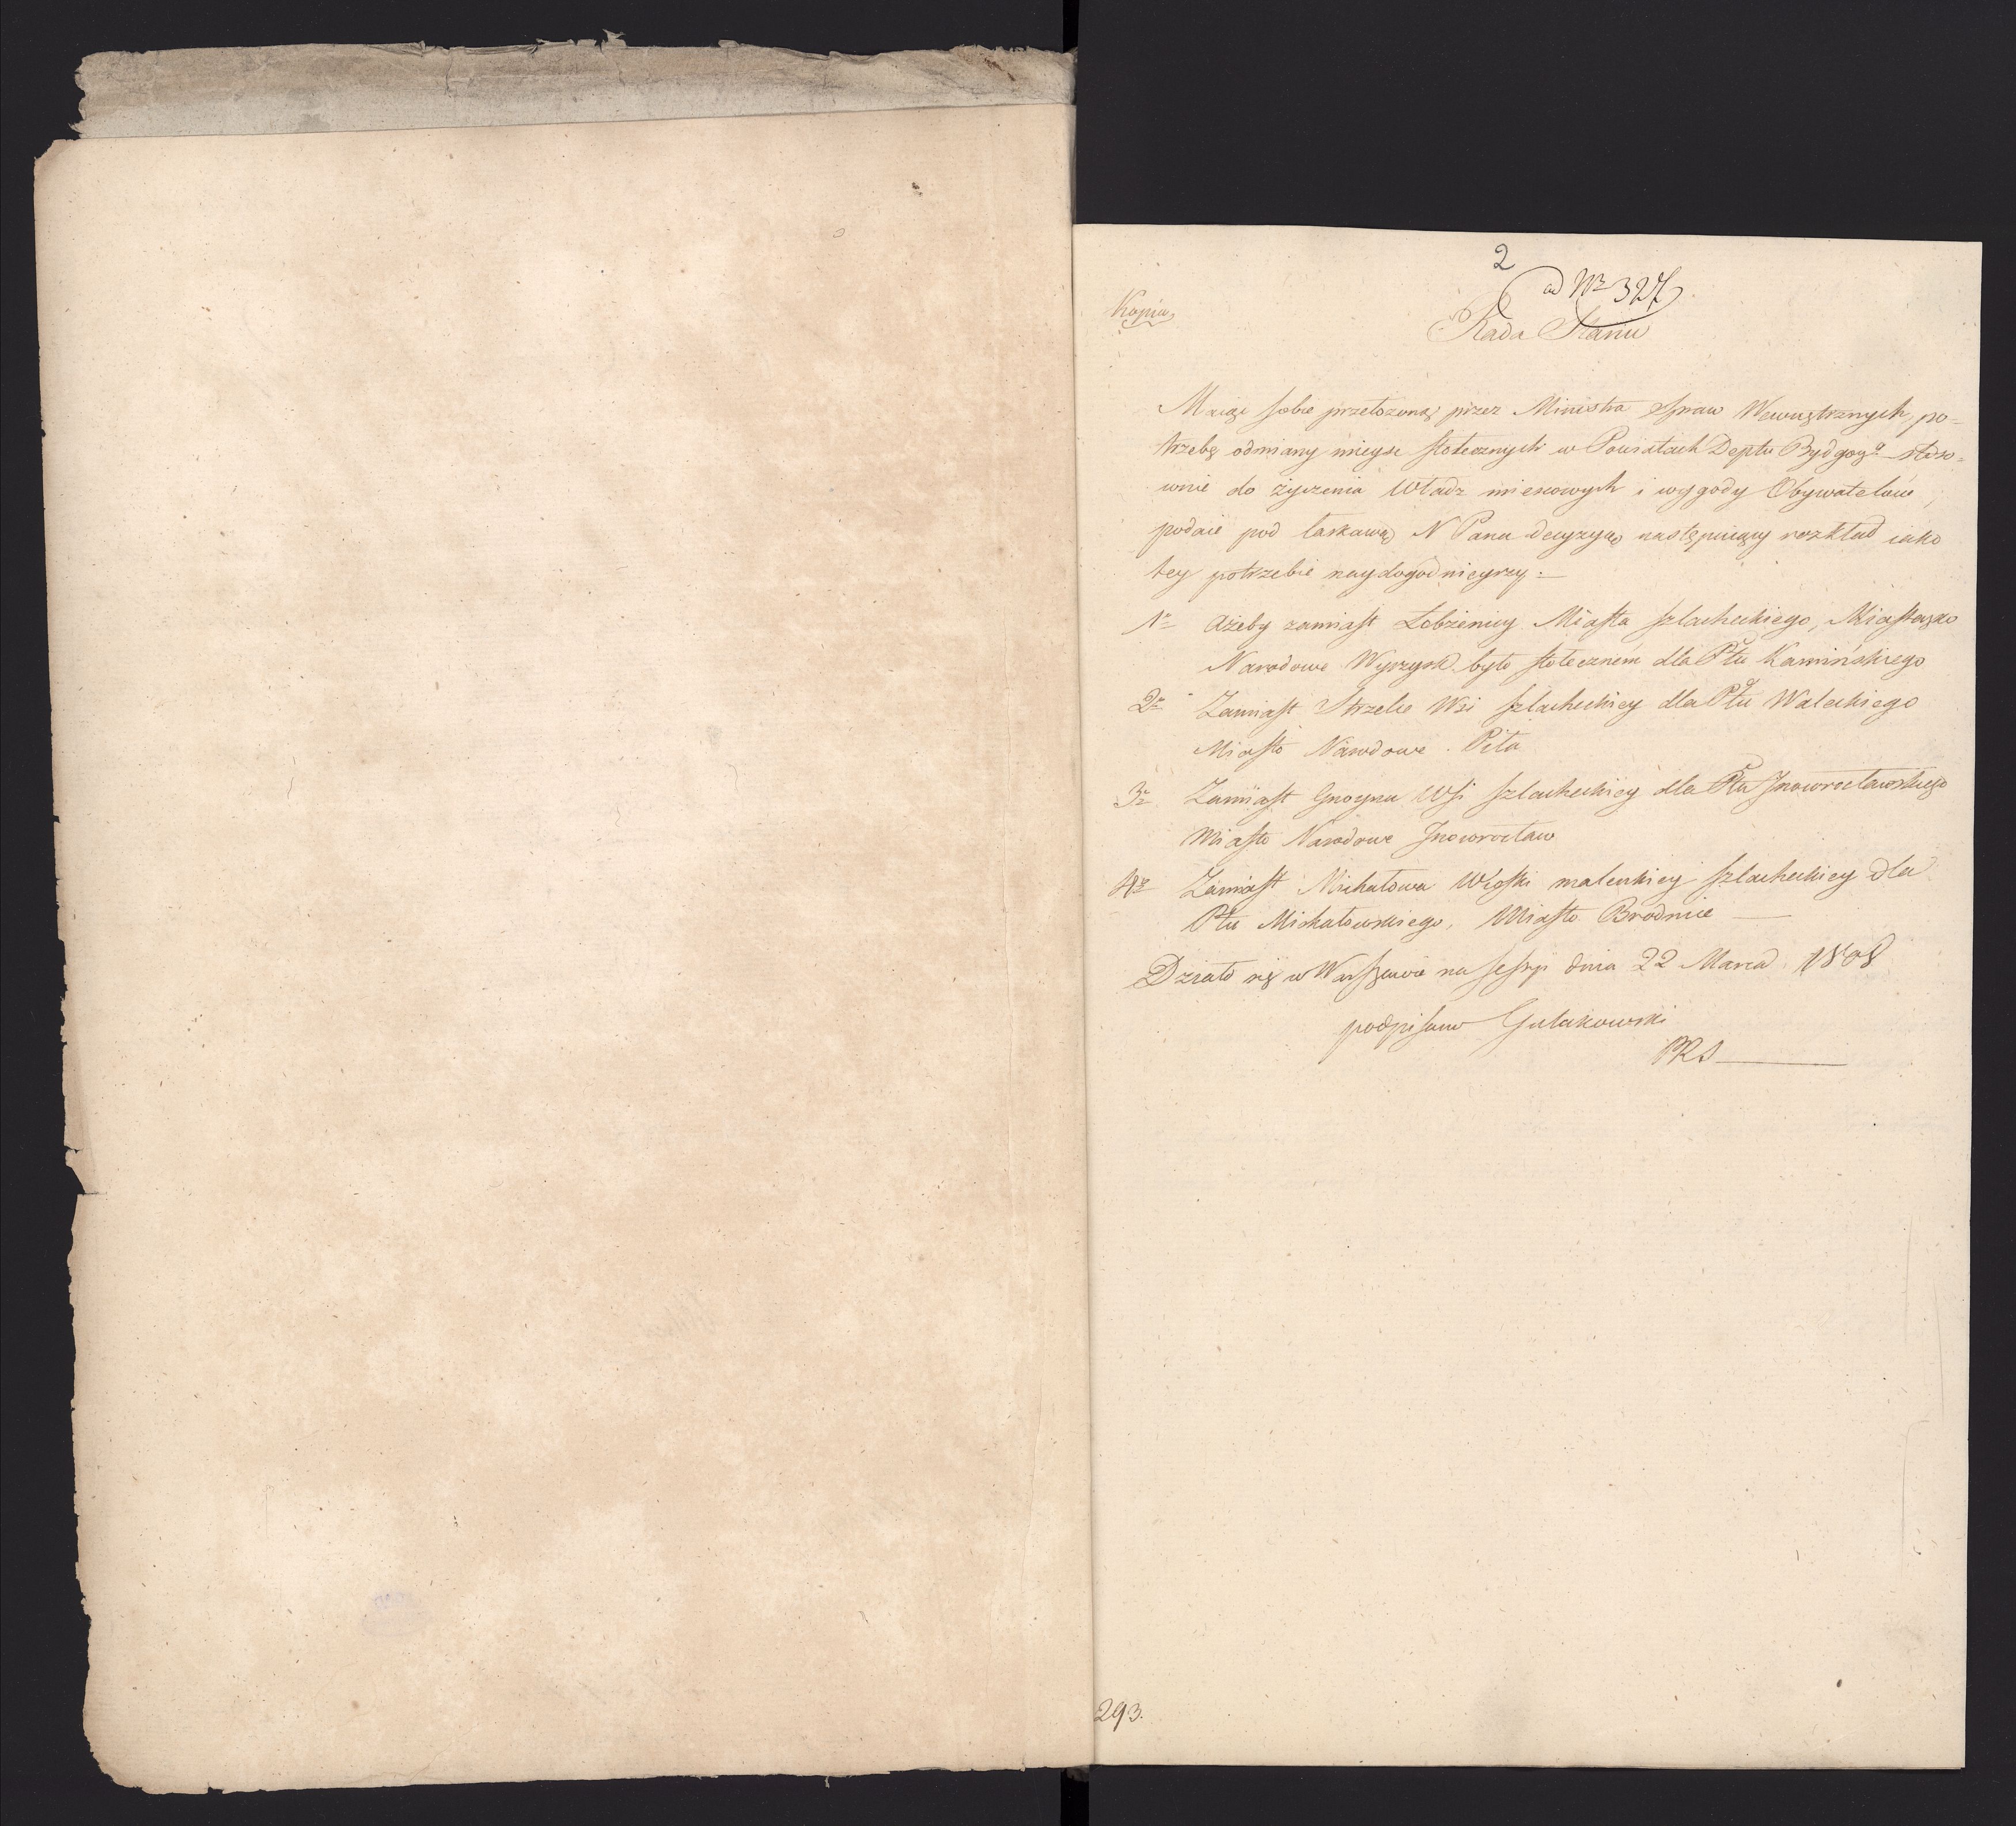 2
ad Nr 327
Kopia
Rada Stanu
Maiąc sobie przełożoną przez Ministra Spraw Wewnętrznych, po=
trzebę odmiany mieysc stołecznych w Powiatach Deptu Bydgogo stoso=
wnie do życzenia Władz mieyscowych i wygody Obywatelów,
podaie pod łaskawą N Pana decyzyą następuiący rozkład iako
tey potrzebie naydogodnieyszy.—
1o Ażeby zamiast Łobżenicy Miasta szlacheckiego, Miasteczko
Narodowe Wyrzysk było stołeczném dla Ptu Kamińskiego
2o Zamiast Strzelc Wsi szlacheckiey dla Ptu Waleckiego
Miasto Narodowe Piła
3o Zamiast Gnoyna Wsi szlacheckiey dla Ptu Jnowrocławskiego
Miasto Narodowe Jnowrocław
4o Zamiast Michałowa Wioski maleńkiey szlacheckiey dla
Ptu Michałowskiego, Miasto Brodnice
Działo się w Warszawie na sessyi dnia 22 Marca 1808
podpisano Gutakowski
PRS
293.